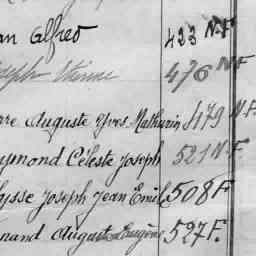 an Alfred 423 N.F.
oseph Etienne 476 N.F
rre Auguste Yves Mathurin 479 N.F.
ymond Céleste Joseph 521 N.F.
lysse Joseph Jean Emile 508 F.
nand Auguste Eugène 527 F.